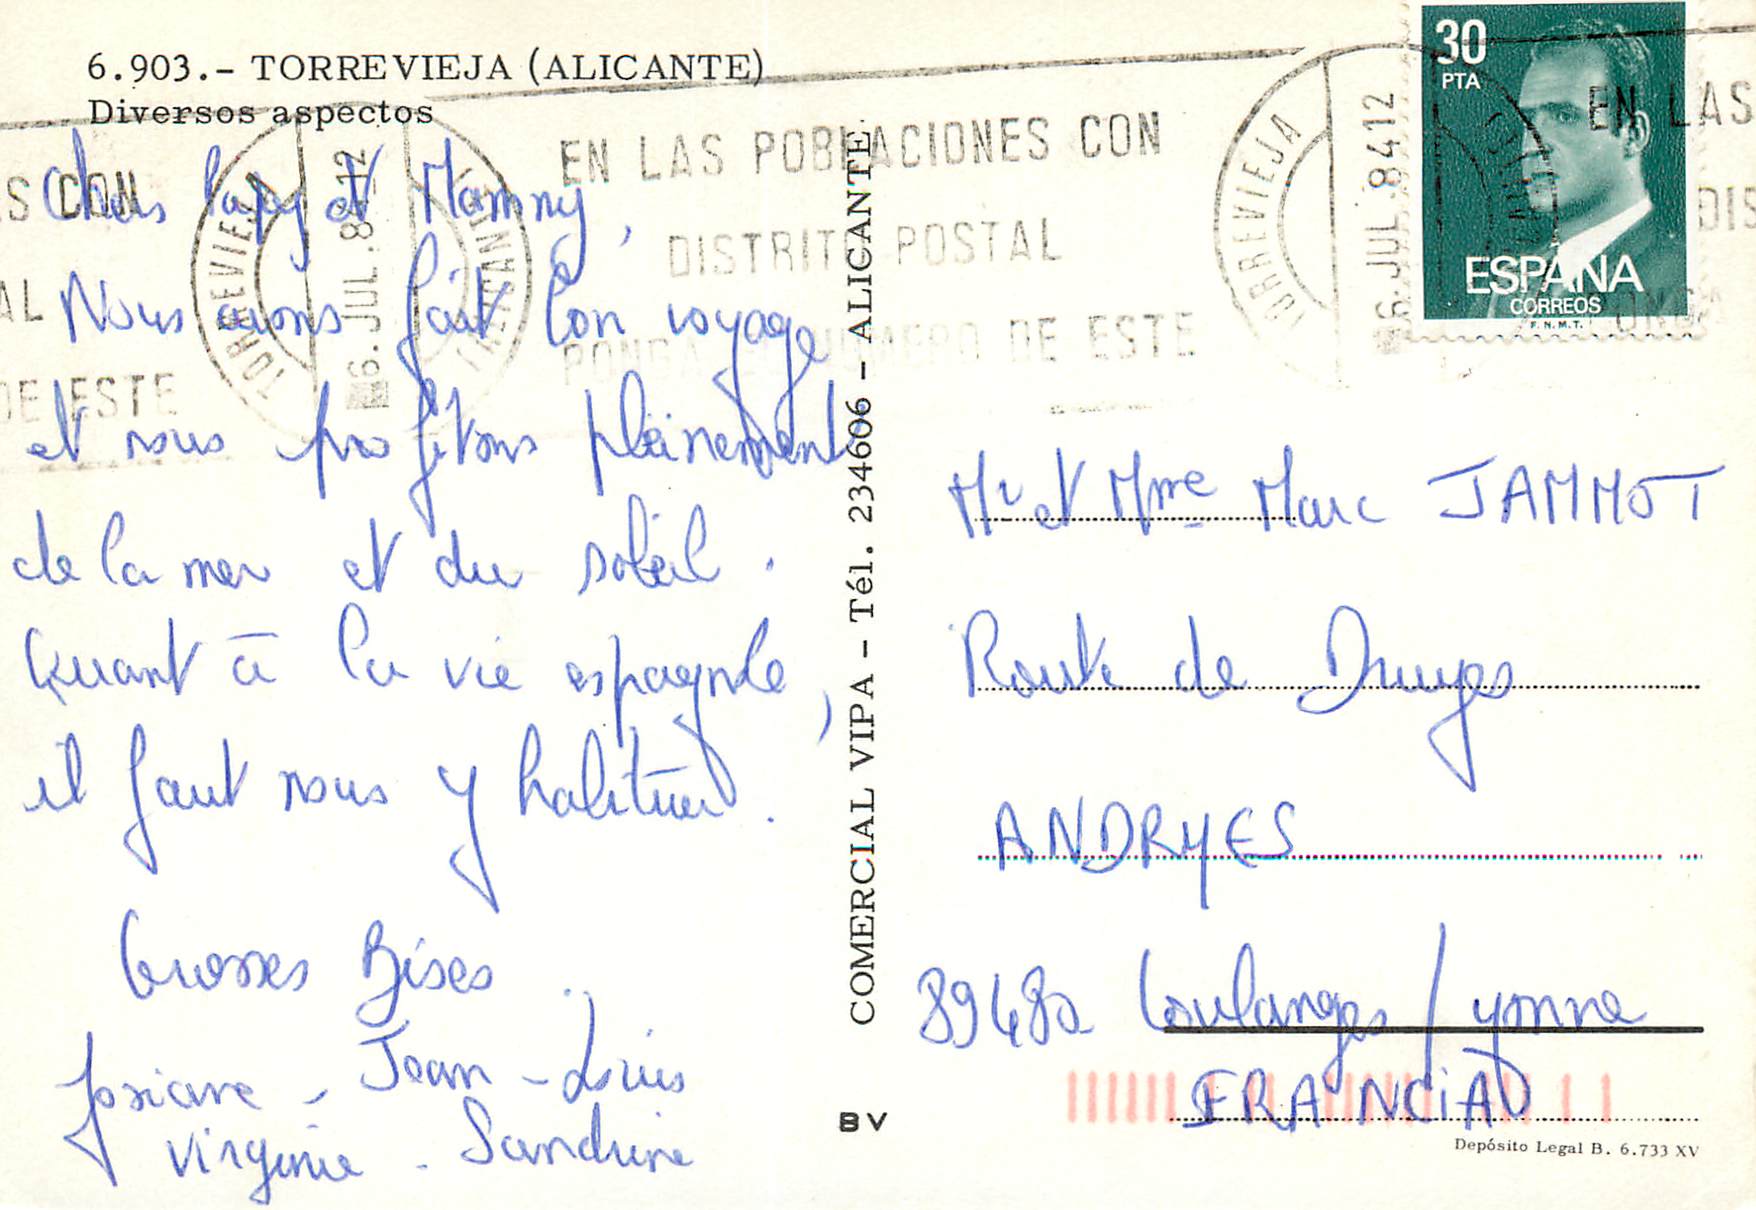 6.903.- TORREVIEJA (ALICANTE)
Diversos aspectos
Chers Papy et Mammy,
Nous avons fait bon voyage
et nous profitons pleinement
de la mer et du soleil.
Quant à la vie espagnole,
il faut nous y habituer.
Grosses Bises.
Josiane - Jean-Louis
Virginie - Sandrine
COMERCIAL VIPA - Tél. 234606 - ALICANTE
EN LAS POBLACIONES CON
DISTRITO POSTAL
PONGA EL NUMERO DE ESTE
TORREVIEJA
(ALICANTE)
6. JUL. 84 12
S CON
AL
DE ESTE
TORREVIEJA
6. JUL. 84 12
EN LAS
DIS
PONGA
30
PTA
ESPAÑA
CORREOS
F.N.M.T.
Mr et Mme Marc JAMMOT
Route de Druyes
ANDRYES
89480 Coulanges / Yonne
FRANCIA
BV
Depósito Legal B. 6.733 XV